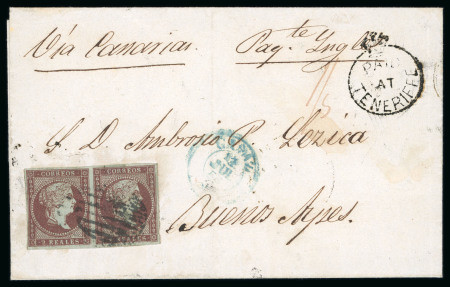 Via Canarias Paqte Ingles
PAID
AT
TENERIFFE
S. D. Ambrosio P. Lezica
Buenos Ayres.
CORREOS CORREOS
2 REALES 2 REALES